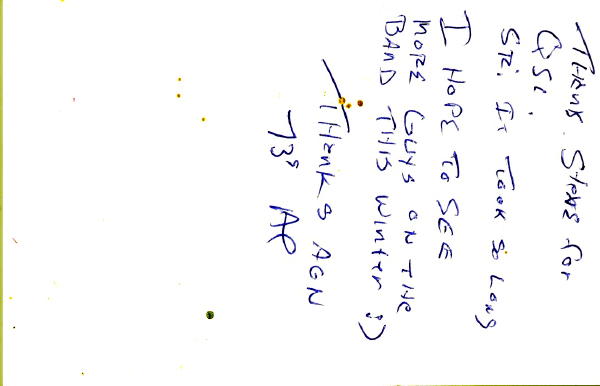 THANK STEVE FOR
QSL.
SRI IT TOOK SO LONG
I HOPE TO SEE
MORE GUYS ON THE
BAND THIS WINTER :)
THANKS AGN
73s